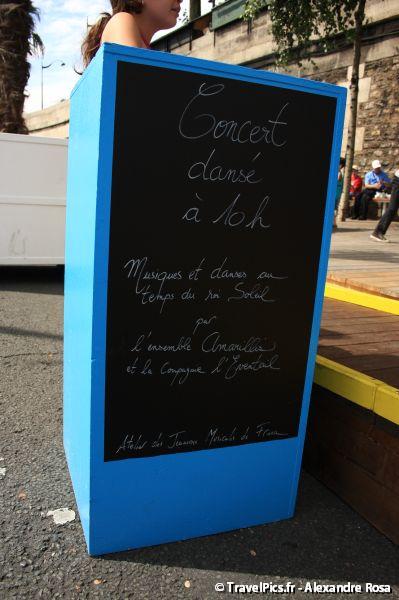 Concert
dansé
à 16h
Musiques et danses au
temps du roi Soleil
par
l'ensemble Amarillis
et la Compagnie l'Eventail
Atelier des Jeunesses Musicales de France
© TravelPics.fr - Alexandre Rosa